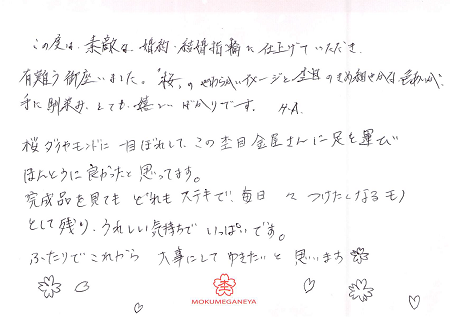 この度は、素敵な婚約・結婚指輪に仕上げていただき、
有難う御座いました。『桜』のやわらかいイメージと杢目のきめ細やかな色わいが
手に馴染み、とても嬉しいばかりです。 H.A
桜ダイヤモンドに一目ぼれして、この杢目金屋さんに足を運び
ほんとうに良かったと思ってます。
完成品を見てもどれもステキで、毎日 つけたくなるモノ
として残り、うれしい気持ちでいっぱいです。
ふたりでこれから大事にしてゆきたいと思います
杢
MOKUMEGANEYA